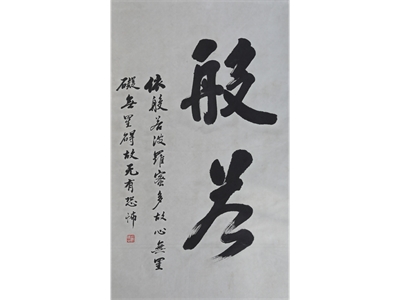 般若
依般若波羅密多故心無罣
礙無罣碍故无有恐怖